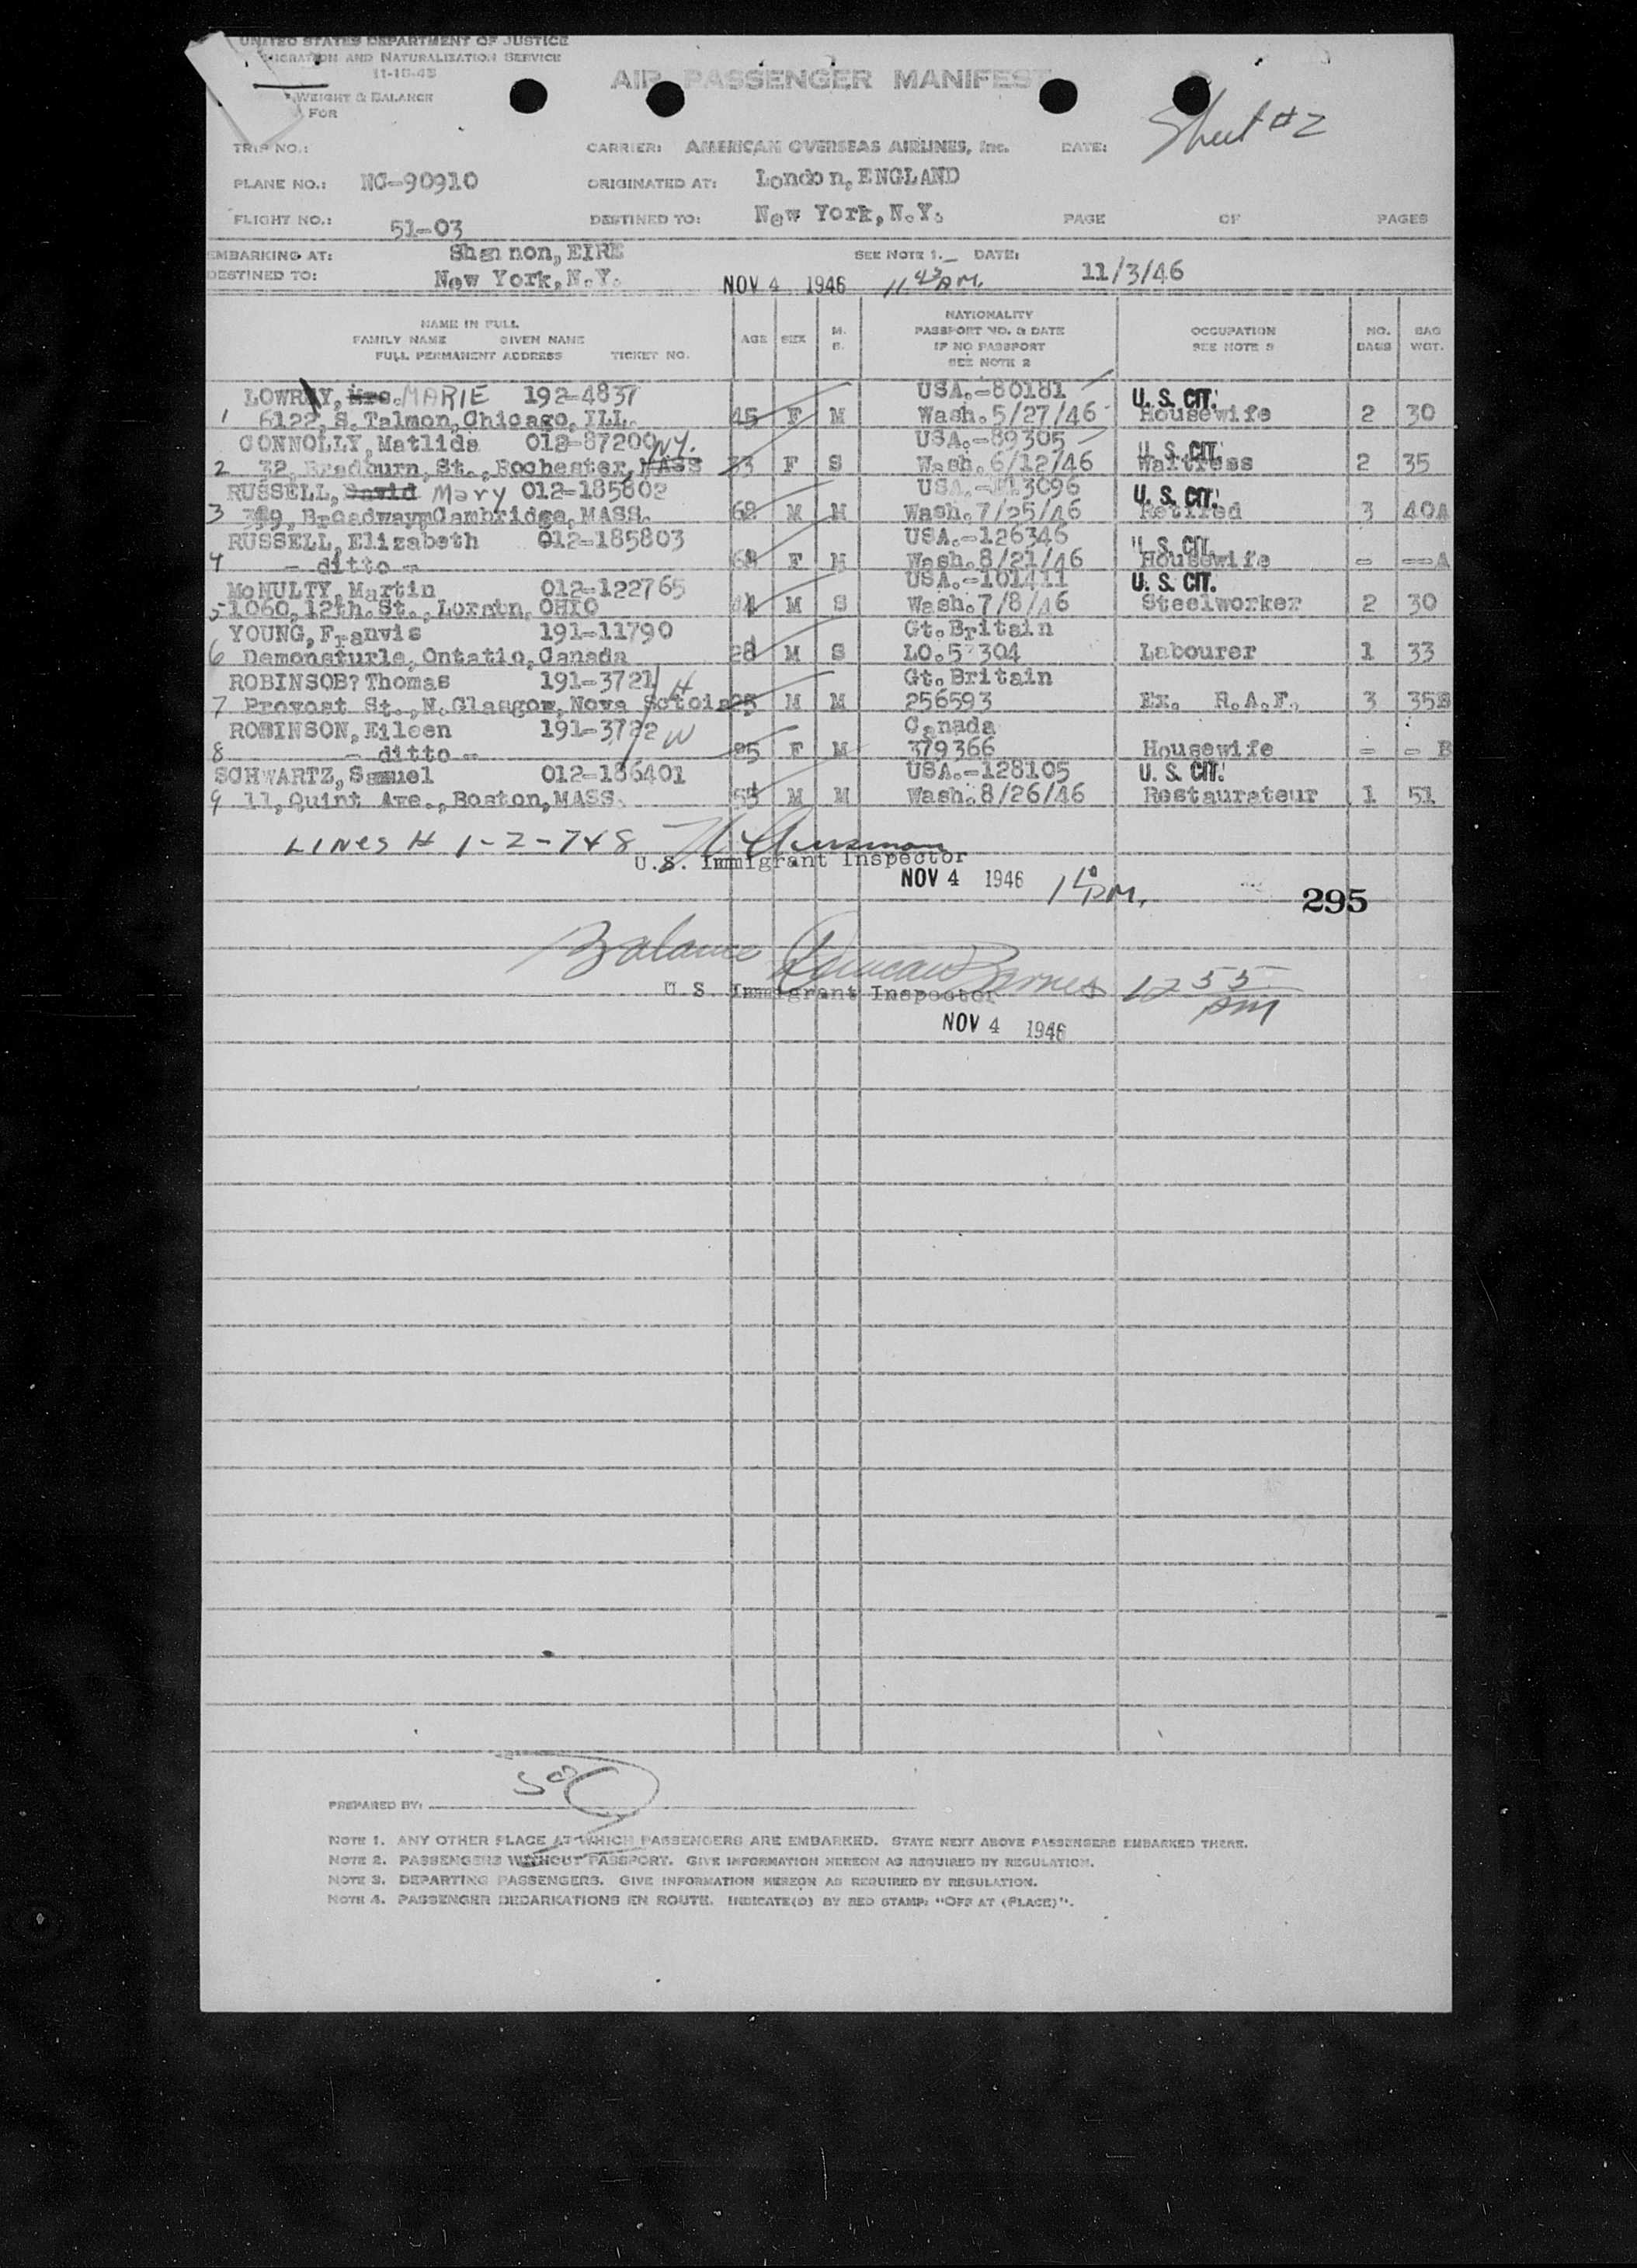 UNITED STATES DEPARTMENT OF JUSTICE
IMMIGRATION AND NATURALIZATION SERVICE
11-16-45
WEIGHT & BALANCE
FOR
AIR PASSENGER MANIFEST
Sheet #2
TRIP NO.: CARRIER: AMERICAN OVERSEAS AIRLINES, Inc. DATE:
PLANE NO.: NC-90910 ORIGINATED AT: London, ENGLAND
FLIGHT NO.: 51-03 DESTINED TO: New York, N.Y. PAGE OF PAGES
EMBARKING AT: Shannon, EIRE SEE NOTE 1. DATE: 11/3/46
DESTINED TO: New York, N.Y. NOV 4 1946 11 43 AM.
NAME IN FULL
FAMILY NAME GIVEN NAME
FULL PERMANENT ADDRESS TICKET NO.
AGE SEX M. S.
NATIONALITY
PASSPORT NO. & DATE
IF NO PASSPORT
SEE NOTE 2
OCCUPATION
SEE NOTE 3
NO. BAGS
BAG WGT.
LOWRY, Mrs. MARIE 192-4837 USA.-80181 U. S. CIT.
1 6122, S. Talmon, Chicago, ILL. 45 F M Wash. 5/27/46 Housewife 2 30
CONNOLLY, Matlida 012-87200 N.Y. USA.-89305 U. S. CIT.
2 32, Bradburn, St., Rochester, MASS 33 F S Wash. 6/12/46 Waitress 2 35
RUSSELL, David Mary 012-185802 USA.-113096 U. S. CIT.
3 389, Broadwaym Cambridge, MASS. 62 M M Wash. 7/25/46 Retired 3 40A
RUSSELL, Elizabeth 012-185803 USA.-126346 U. S. CIT.
4 - ditto - 68 F M Wash. 8/21/46 Housewife - --A
McNULTY, Martin 012-122765 USA.-101411 U. S. CIT.
5 1060, 12th. St., Lorain, OHIO 44 M S Wash. 7/8/46 Steelworker 2 30
YOUNG, Franvis 191-11790 Gt. Britain
6 Damonsturle, Ontatio, Canada 28 M S LO.57304 Labourer 1 33
ROBINSOB? Thomas 191-3721 H Gt. Britain
7 Provost St., N. Glasgow, Nova Sctoia 25 M M 256593 Ex. R.A.F. 3 35B
ROBINSON, Eileen 191-3722 W Canada
8 - ditto - 25 F M 379366 Housewife - - B
SCHWARTZ, Samuel 012-186401 USA.-128105 U. S. CIT.
9 11, Quint Ave., Boston, MASS. 55 M M Wash. 8/26/46 Restaurateur 1 51
LINES # 1-2-7+8
U.S. Immigrant Inspector
NOV 4 1946 1 10 PM.
295
Balance Duncan Barnes 12 55 PM
U.S. Immigrant Inspector
NOV 4 1946
PREPARED BY:
NOTE 1. ANY OTHER PLACE AT WHICH PASSENGERS ARE EMBARKED. STATE NEXT ABOVE PASSENGERS EMBARKED THERE.
NOTE 2. PASSENGERS WITHOUT PASSPORT. GIVE INFORMATION HEREON AS REQUIRED BY REGULATION.
NOTE 3. DEPARTING PASSENGERS. GIVE INFORMATION HEREON AS REQUIRED BY REGULATION.
NOTE 4. PASSENGER DEBARKATIONS EN ROUTE. INDICATE(D) BY RED STAMP: "OFF AT (PLACE)".